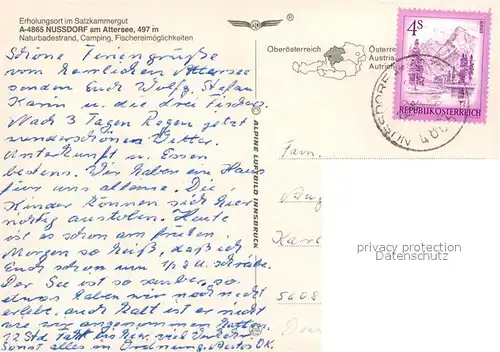 Erholungsort im Salzkammergut
A-4865 NUSSDORF am Attersee, 497 m
Naturbadestrand, Camping, Fischereimöglichkeiten
Schöne Feriengrüße
vom herrlichen Attersee
senden Euch Wolfg. Stefan
Karin u. die drei
Nach 3 Tagen Regen jetzt
wunderschönes Wetter.
Unterkunft u. Essen
bestens. Wir haben ein Haus
für uns alleine. Die
Kinder können sich hier
richtig austoben. Heute
ist es schon am frühen
Morgen so heiß, daß ich
Euch schon um 1/2 8 u. schreibe.
Der See ist so sauber, so
etwas haben wir noch nicht
erlebt, auch kalt ist er nicht
wie wir angenommen hatten.
12 Std. Fahrt bis hier, viel Verkehr
Sonst alles in Ordnung, Autos OK.
© ALPINE LUFTBILD INNSBRUCK
Oberösterreich
Österre
Austria
Autri
4S
REPUBLIK ÖSTERREICH
NUSSDORF
Fam.
Aug
Karl
5608
privacy protection
DSGVO